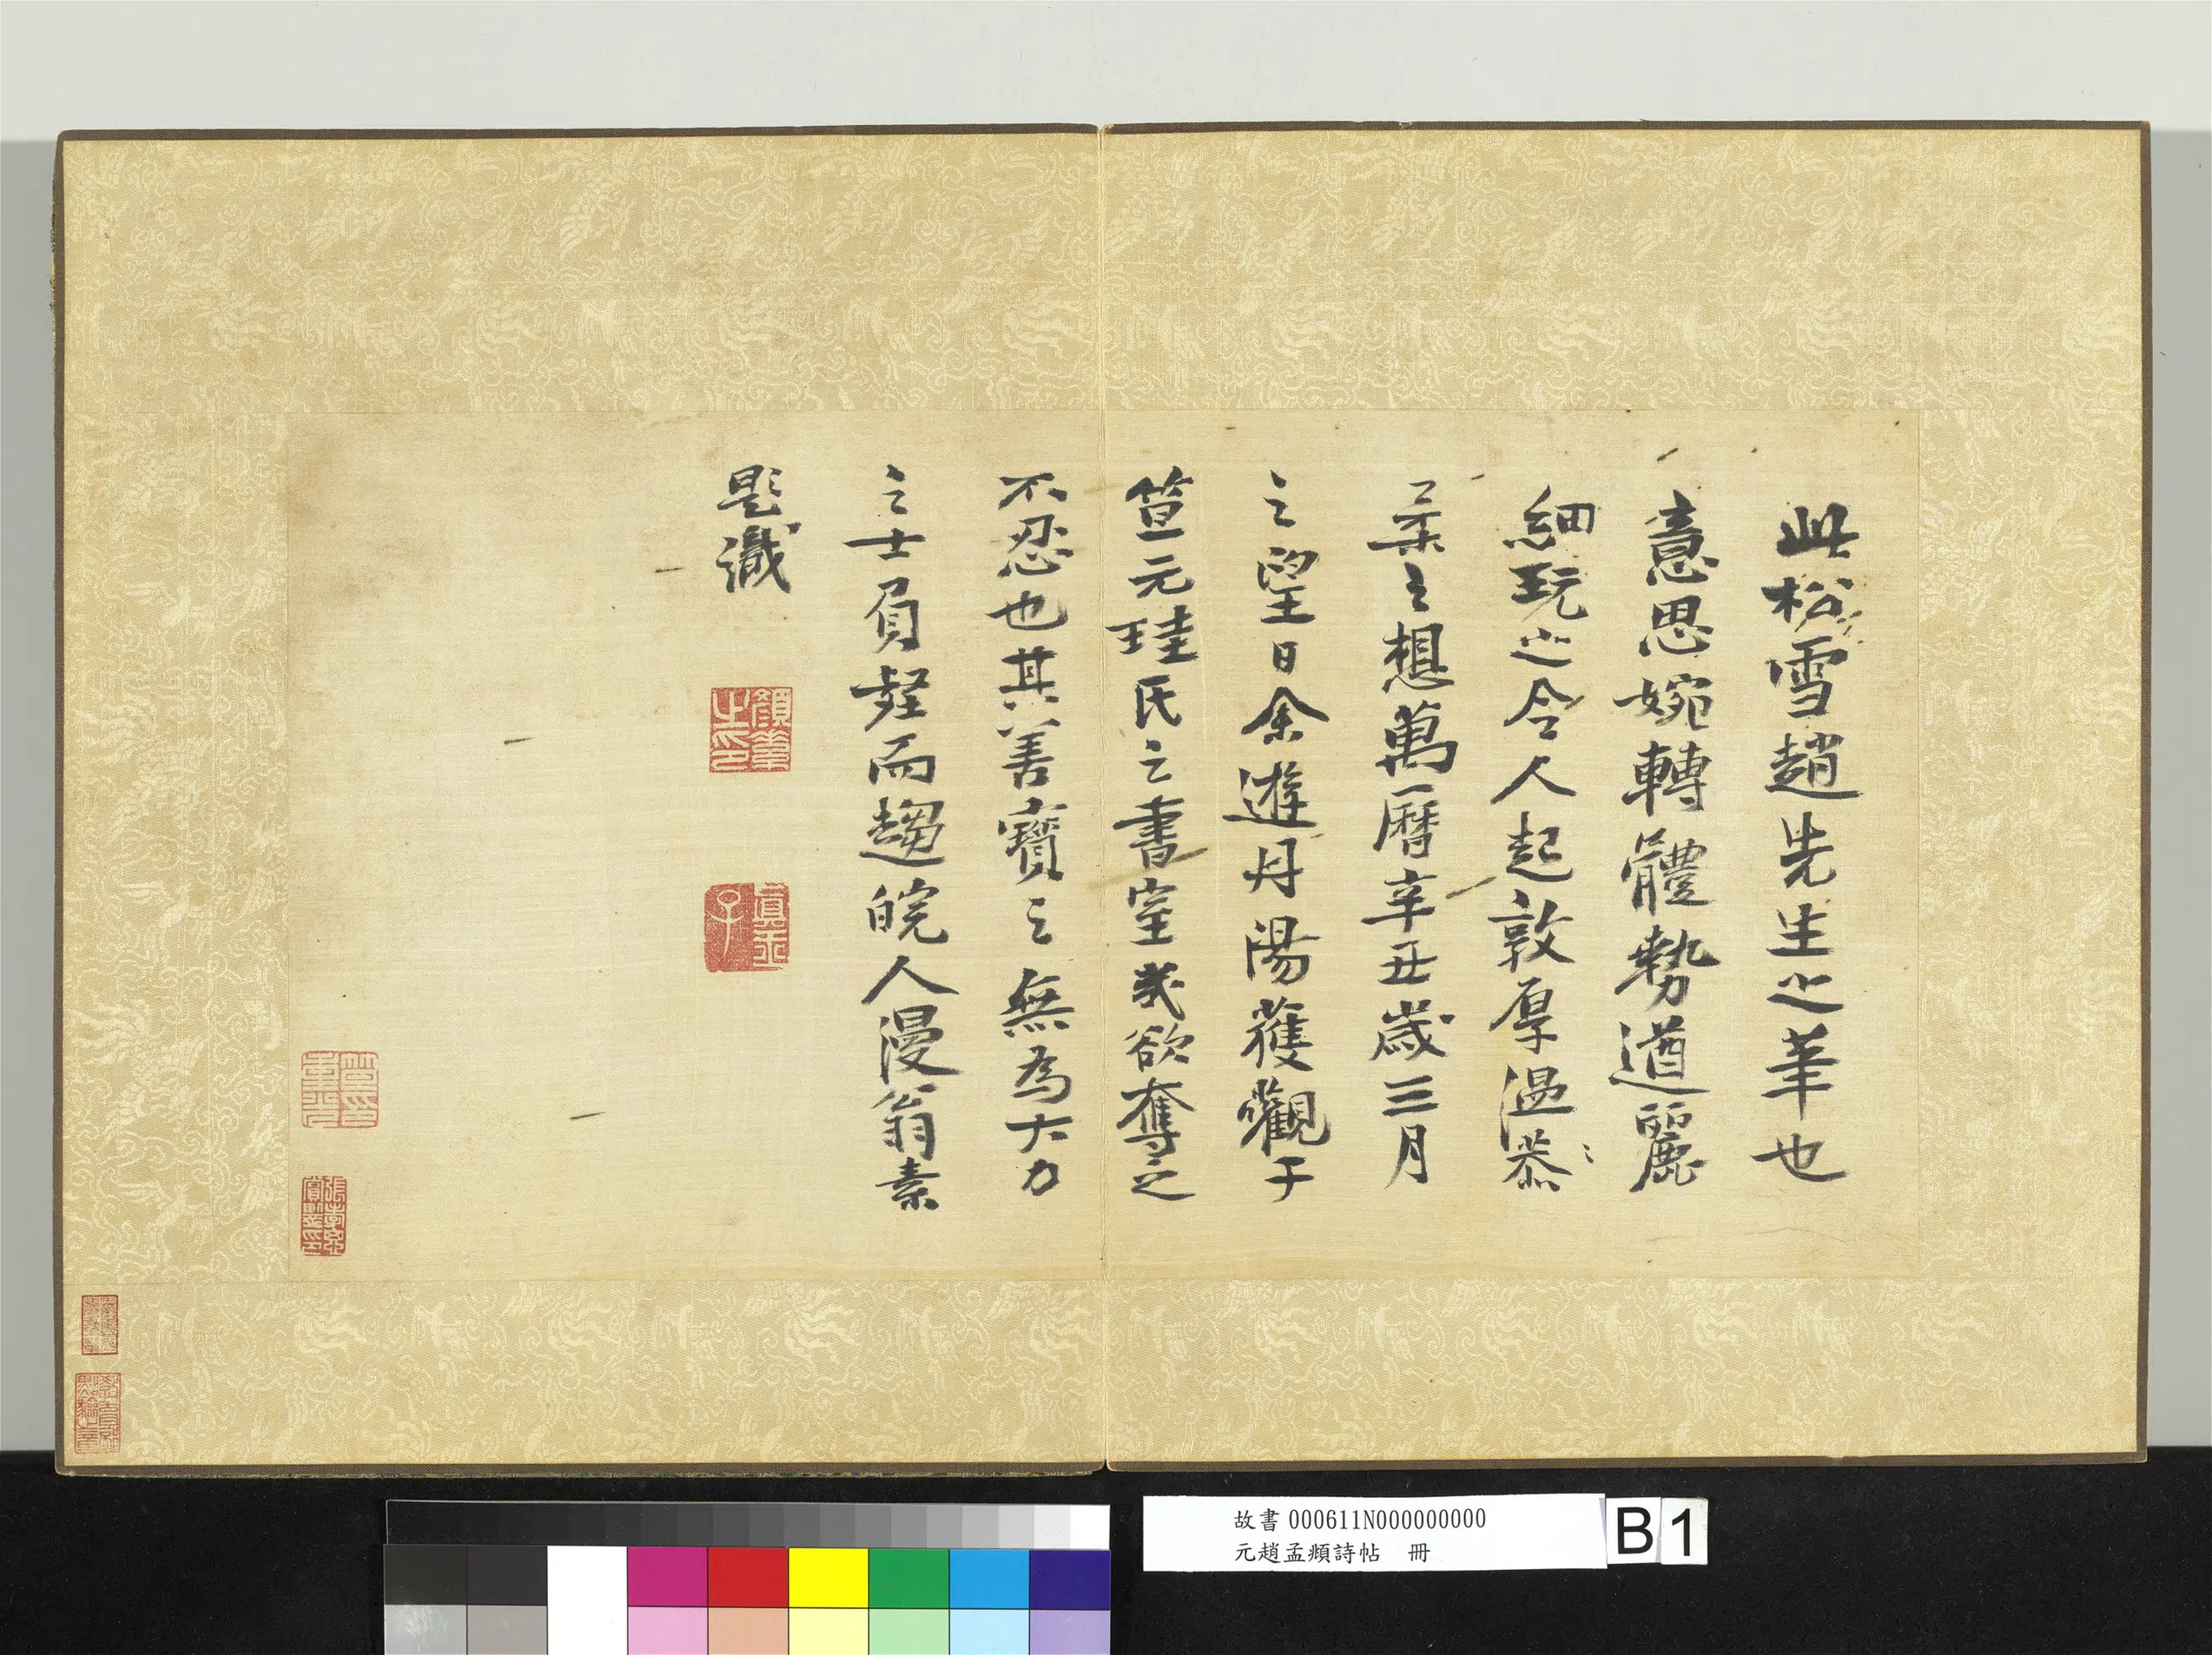 此松雪趙先生之筆也
意思婉轉體勢遒麗
細玩之令人起敦厚溫恭
柔之想萬曆辛丑歲三月
之望日余遊丹陽獲觀于
笪元珪氏之書室幾欲奪之
不忍也其善寶之無為大力
之士負壑而趨皖人漫翁素
題識
故書 000611N000000000
元趙孟頫詩帖 冊
B 1